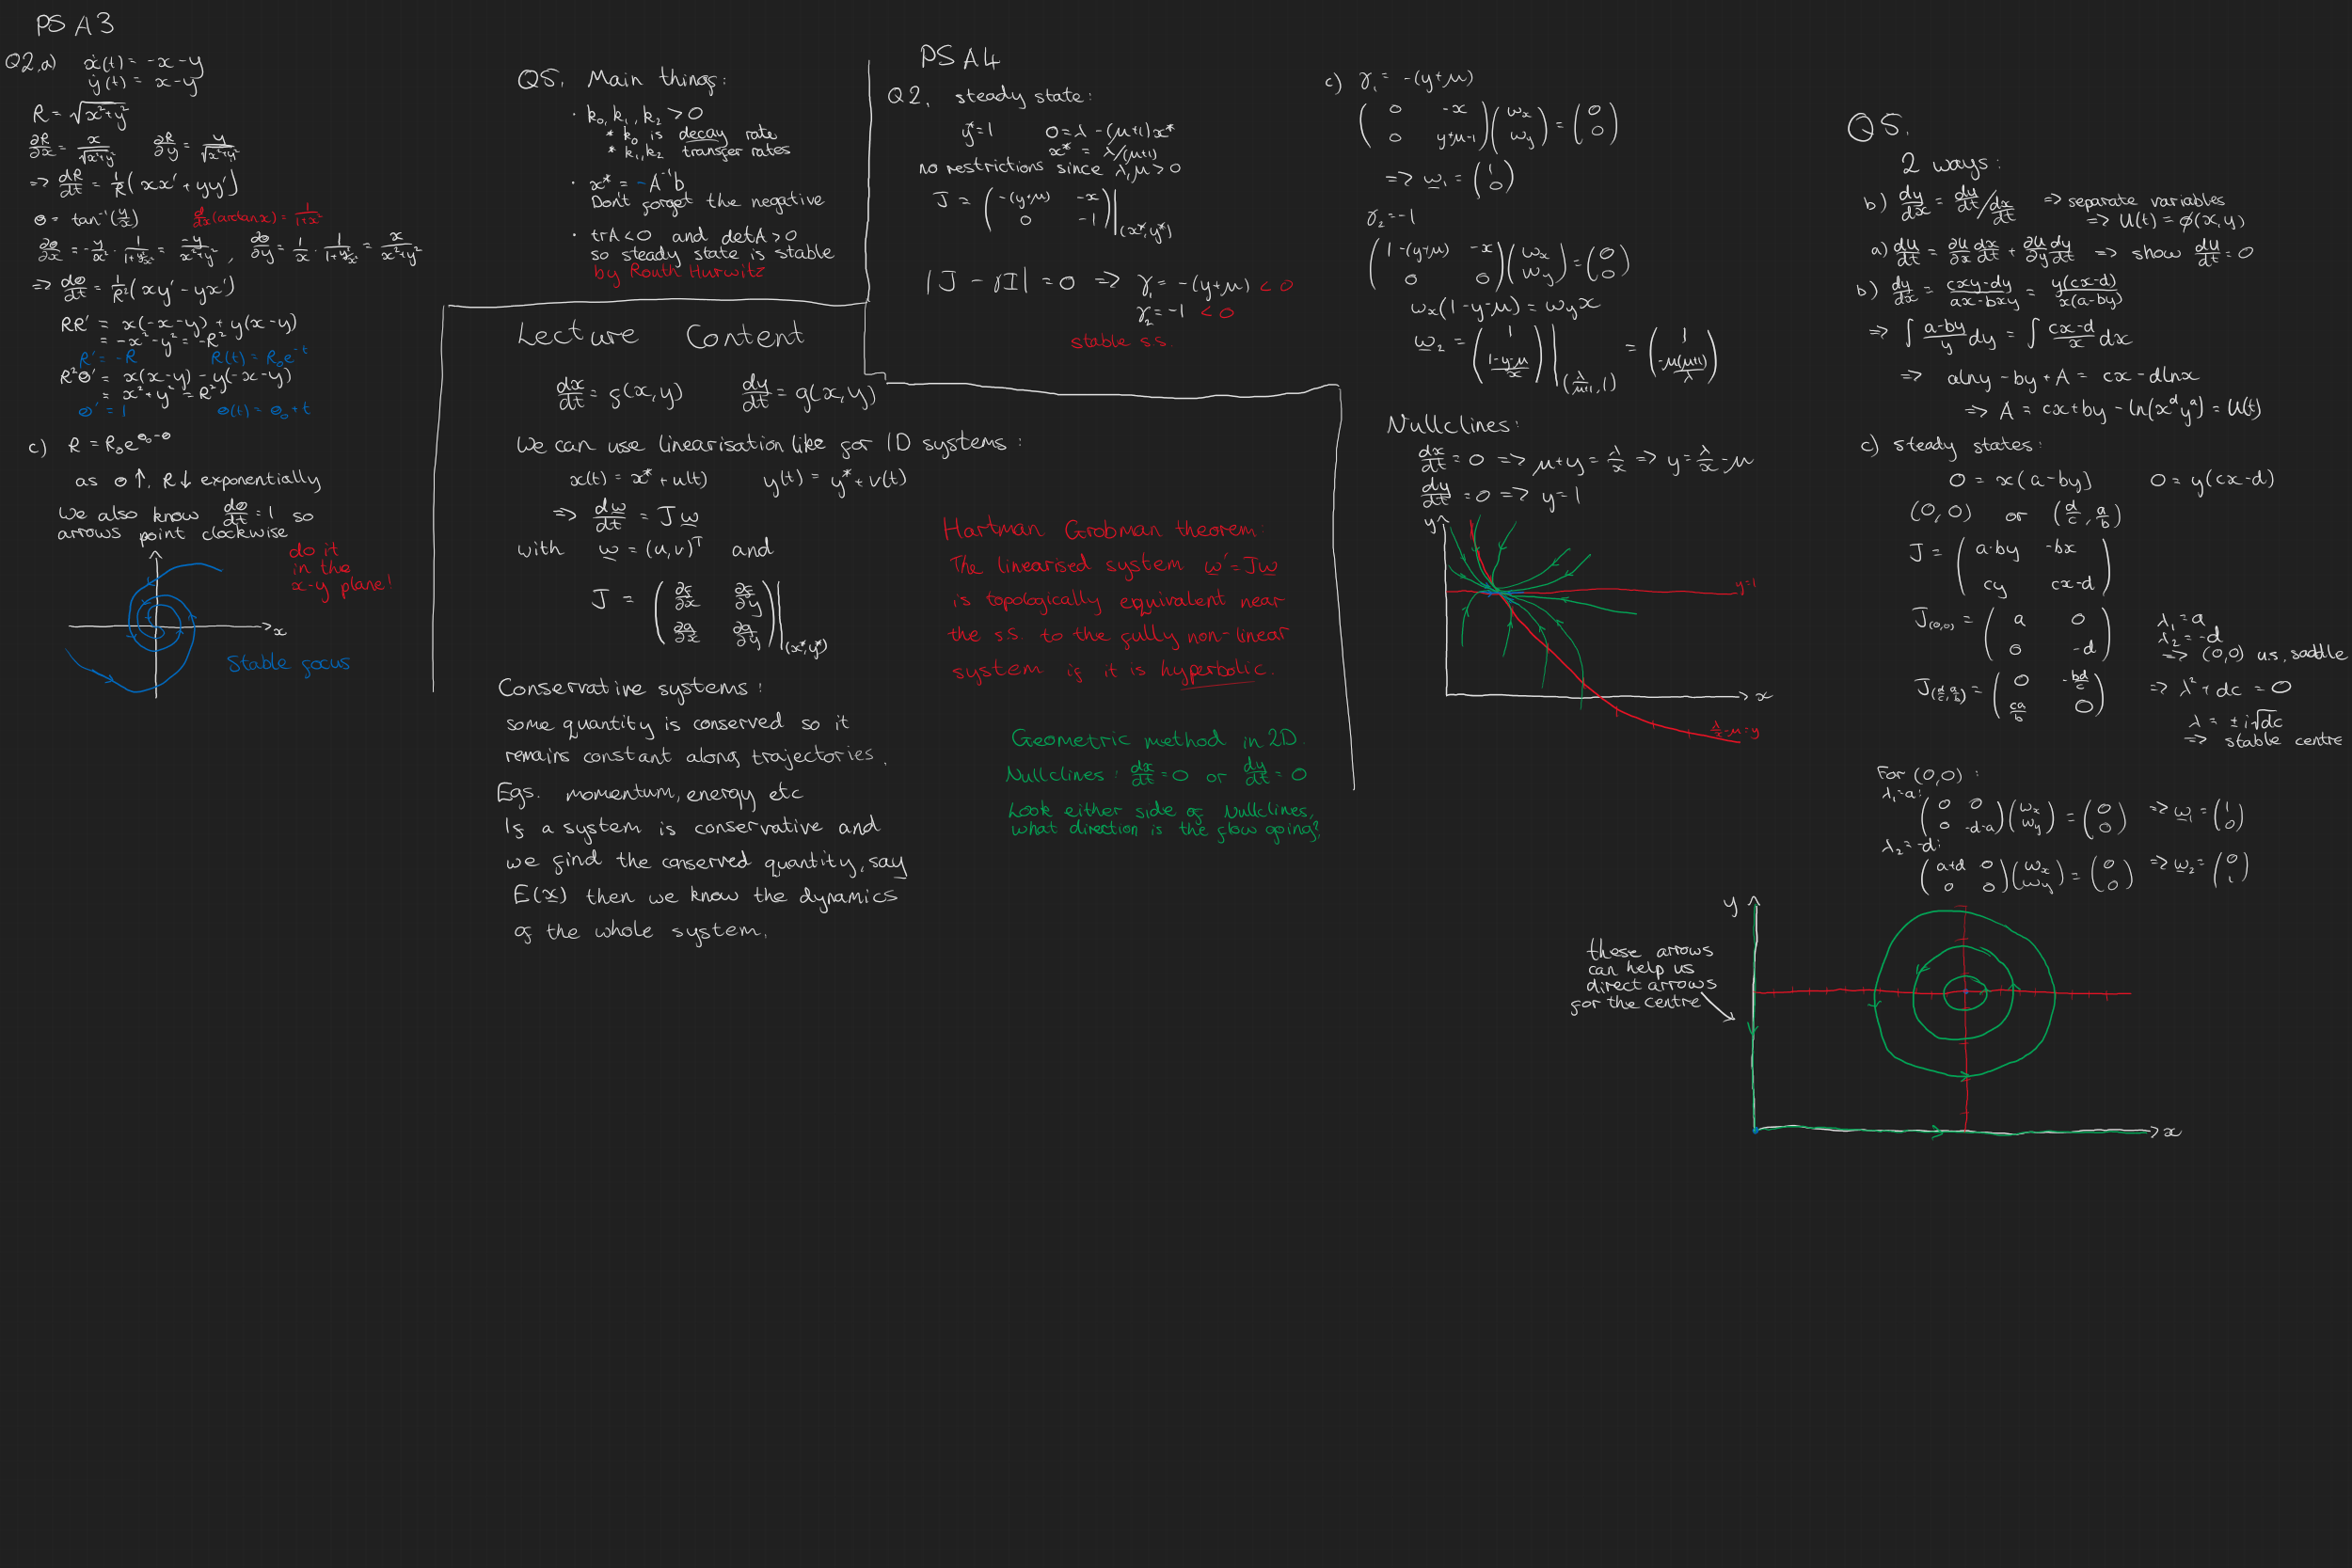 PS A3
Q2.a) ẋ(t) = -x-y
ẏ(t) = x-y
R = √(x²+y²)
∂R/∂x = x/√(x²+y²)   ∂R/∂y = y/√(x²+y²)
=> dR/dt = 1/R (xx' + yy')
θ = tan⁻¹(y/x)   d/dx(arctanx) = 1/(1+x²)
∂θ/∂x = -y/x² · 1/(1+y²/x²) = -y/(x²+y²) , ∂θ/∂y = 1/x · 1/(1+y²/x²) = x/(x²+y²)
=> dθ/dt = 1/R² (xy' - yx')
RR' = x(-x-y) + y(x-y)
= -x²-y² = -R²
R' = -R   R(t) = R₀e⁻ᵗ
R²θ' = x(x-y) - y(-x-y)
= x²+y² = R²
θ' = 1   θ(t) = θ₀+t
c) R = R₀e^(θ₀-θ)
as θ↑, R↓ exponentially
We also know dθ/dt = 1 so
arrows point clockwise
do it
in the
x-y plane!
x
Stable focus
Q5. Main things:
· k₀, k₁, k₂ > 0
* k₀ is decay rate
* k₁, k₂ transfer rates
· x* = -A⁻¹b
Don't forget the negative
· trA<0 and detA>0
so steady state is stable
by Routh Hurwitz
Lecture Content
dx/dt = f(x,y)   dy/dt = g(x,y)
We can use linearisation like for 1D systems:
x(t) = x* + u(t)   y(t) = y* + v(t)
=> dw/dt = Jw
with w = (u,v)ᵀ and
J = (∂f/∂x ∂f/∂y
∂g/∂x ∂g/∂y)|(x*,y*)
Conservative systems:
some quantity is conserved so it
remains constant along trajectories.
Egs. momentum, energy etc
If a system is conservative and
we find the conserved quantity, say
E(x) then we know the dynamics
of the whole system.
Hartman Grobman theorem:
The linearised system w' = Jw
is topologically equivalent near
the s.s. to the fully non-linear
system if it is hyperbolic.
Geometric method in 2D.
Nullclines: dx/dt = 0 or dy/dt = 0
Look either side of Nullclines,
what direction is the flow going?
PS A4
Q2. steady state:
y* = 1   0 = λ - (μ+1)x*
x* = λ/(μ+1)
no restrictions since λ,μ > 0
J = (-(y+μ) -x
0 -1)|(x*,y*)
|J - γI| = 0 => γ₁ = -(y+μ) < 0
γ₂ = -1 < 0
stable s.s.
c) γ₁ = -(y+μ)
(0 -x
0 y+μ-1)(wx
wy) = (0
0)
=> w₁ = (1
0)
γ₂ = -1
(1-(y+μ) -x
0 0)(wx
wy) = (0
0)
wx(1-y-μ) = wyx
w₂ = (1
(1-y-μ)/x)|(λ/(μ+1), 1) = (1
-μ(μ+1)/λ)
Nullclines:
dx/dt = 0 => μ+y = λ/x => y = λ/x - μ
dy/dt = 0 => y = 1
y
y=1
x
λ/x - μ = y
Q5.
2 ways:
b) dy/dx = dy/dt / dx/dt => separate variables
=> U(t) = φ(x,y)
a) dU/dt = ∂U/∂x dx/dt + ∂U/∂y dy/dt => show dU/dt = 0
b) dy/dx = (cxy-dy)/(ax-bxy) = y(cx-d)/x(a-by)
=> ∫ (a-by)/y dy = ∫ (cx-d)/x dx
=> alny - by + A = cx - dlnx
=> A = cx+by - ln(xᵈyᵃ) = U(t)
c) steady states:
0 = x(a-by)   0 = y(cx-d)
(0,0) or (d/c, a/b)
J = (a-by -bx
cy cx-d)
J(0,0) = (a 0
0 -d)
λ₁ = a
λ₂ = -d
=> (0,0) u.s. saddle
J(d/c, a/b) = (0 -bd/c
ca/b 0)
=> λ² + dc = 0
λ = ± i√dc
=> stable centre
For (0,0):
λ₁ = a:
(0 0
0 -d-a)(wx
wy) = (0
0) => w₁ = (1
0)
λ₂ = -d:
(a+d 0
0 0)(wx
wy) = (0
0) => w₂ = (0
1)
y
these arrows
can help us
direct arrows
for the centre
x